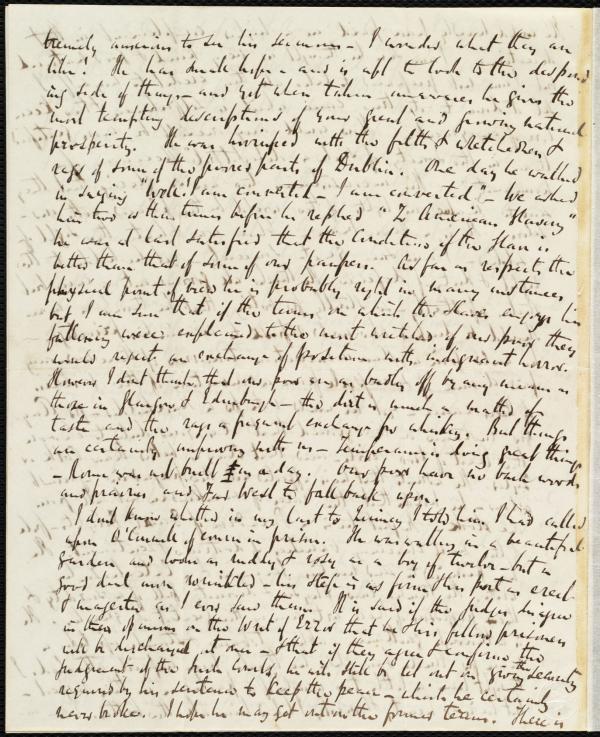 tremely anxious to see his sermons - I wonder what they are
like! He has much hope - and is apt to look to the despond
ing side of things - and yet when taken unawares he gives the
most tempting descriptions of your great and growing national
prosperity. He was horrified with the filth & wretchedness &
rags of some of the poorest parts of Dublin. One day he walked
in saying "Well I am converted - I am converted" - We asked
him two or three times before he replied "To American Slavery"
he was at last satisfied that the condition of the slave is
better than that of some of our paupers. As far as respects the
physical point of view he is probably right in many instances
but I am sure that if the terms on which the slave enjoys his
fattening were explained to the most wretched of our poor they
would reject an exchange of position with indignant horror.
However I don't think that our poor are as badly off by any means as
those in Glasgow & Edinburgh - the dirt is much a matter of
taste and the rags a frequent exchange for whiskey. But things
are certainly improving with us - Temperance is doing great things
- Rome was not built in a day. Our poor have no back woods
and prairies and Far West to fall back upon.
I don't know whether in my last to Quincy I told him I had called
upon O'Connell of course in prison. He was walking in a beautiful
garden and looks as ruddy & rosy as a boy of twelve - but a
good deal more wrinkled - his step is as firm & his port as erect
& majestic as I ever saw them. It is said if the judges disagree
in their opinions on the Writ of Error that he & his fellow prisoners
will be discharged at once - & that if they agree & confirm the
Judgment of the Irish Courts, he will still be let out on giving the security
required by his sentence to keep the peace - which he certainly
never broke. I hope he may get out on the former terms. There is